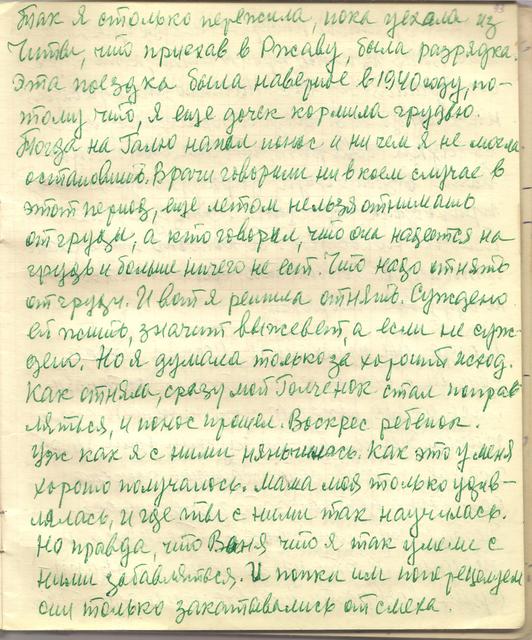 Так я столько пережила, пока уехала из
Читы, что приехав в Ржаву, была разрядка.
Эта поездка была наверное в 1940 году, по-
тому что, я еще дочек кормила грудью.
Тогда на Галю напал понос и ни чем я не могла
остановить. Врачи говорили ни в коем случае в
этот период, еще летом нельзя отнимать
от груди, а кто говорил, что она надеется на
грудь и больше ничего не ест. Что надо отнять
от груди. И вот я решила отнять. Суждено
ей жить, значит выживет, а если не суж-
дено. Но я думала только за хороший исход.
Как отняла, сразу мой Голченок стал поправ
ляться, и понос прошел. Воскрес ребенок.
Уж как я с ними няньчилась. Как это у меня
хорошо получалось. Мама моя только удив-
лялась, и где ты с ними так научилась.
Но правда, что Ваня что я так умели с
ними забавляться. И попка им поперецелуем
они только закатывались от смеха.